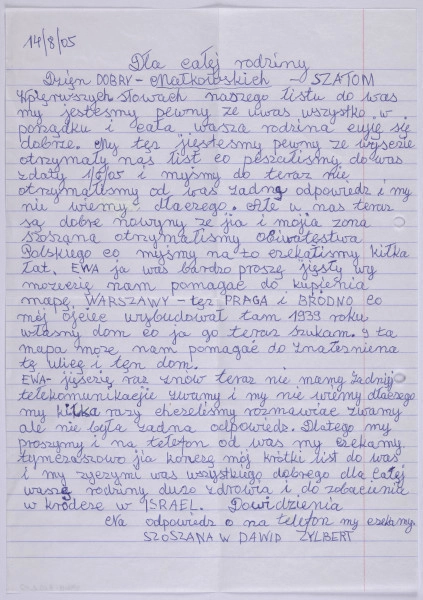 14/8/05
Dla całej rodziny
Dzięn DOBRY - Małkowskich - SZATOM
W pierwszych słowach naszego listu do was
my jestesmy pewny ze uwas wszystko w
porządku i cała wasza rodzina czyję się
dobrze. My tęz jięstesmy pewny ze wyscie
otrzymaly nas list co peszalismy do was
zdaty 1/6/05 i myjsmy do teraz nie
otrzymalismy od was zadną odpowiedz i my
nie wiemy dlaczego. Ale u nas teraz
są dobre nowyny ze jia i mojia zona
szoszana otrzymalismy obiwatestwa
Polskiego co myjsmy na to czekalismy kilka
lat. EWA ja was bardzo proszę jięsły wy
mozecie nam pomagać do kupienia
mapę WARSZAWY - tęz PRAGA i BRÓDNO co
mój ojciec wybudował tam 1939 roku
własny dom co ja go teraz szukam. I ta
mapa moze nam pomagać do znalesniena
tę ulicę i tęn dom.
EWA - jięszczę raz znów teraz nie mamy zadniji
telekomunikaejie zwamy i my nie wiemy dlaczego
my kilka razy chczelismy rozmawiac zwamy
ale nie była zadna odpowiedz. Dlatego my
proszymy i na telefon od was my czekamy.
tymczaszowo jia konczę mój krótki list do was
i my zyczymi was wszystkiego dobrego dla całej
waszę rodziny duzo zdrowia i do zobaczenia
w krodcse w ISRAEL. Dowidzienia
Na odpowiedz o na telefon my czekamy.
SZOSZANA W DAWID ZYLBERT